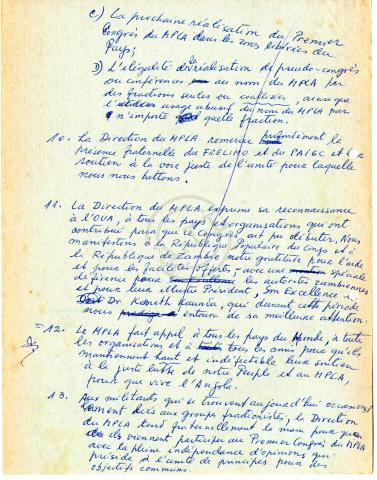 c) La prochaine réalisation du Premier
Congrès du MPLA dans les zones libérées du
Pays;
D) L'illégalité de réalisation de pseudo-congrès
ou conférences au nom du MPLA par
des fractions seules ou coalisées, ainsi que
l'usage abusif du nom du MPLA par
n'importe quelle fraction.
10. La Direction du MPLA remercie profondément la
Présence fraternelle du FRELIMO et du PAIGC et leur
soutien à la voie juste de l'unité pour laquelle
nous nous battons.
11. La Direction du MPLA exprime sa reconnaissance
à l'OUA, à tous les pays et organisations qui ont
contribué pour que ce Congrès ait pu débuter. Nous
manifestons à la République Populaire du Congo et à
la République de Zambie notre gratitude pour l'aide
et pour les facilités offertes, avec une spéciale
déférence pour les autorités zambiennes
et pour leur illustre Président, Son Excellence
Dr. Kenneth Kaunda, qui durant cette période
nous entoura de sa meilleure attention.
12. Le MPLA fait appel à tous les pays du Monde, à toutes
les organisations et à tous les amis pour qu'ils
maintiennent haut et indéfectible leur soutien
à la juste lutte de notre Peuple et au MPLA,
pour que vive l'Angola.
13. Aux militants qui se trouvent aujourd'hui occasionnel-
lement liés aux groupes fractionistes, la Direction
du MPLA tend fraternellement la main pour que
ils viennent participer au Premier Congrès du MPLA
avec la pleine indépendance d'opinions qui
préside à l'unité de principes pour des
objectifs communs.